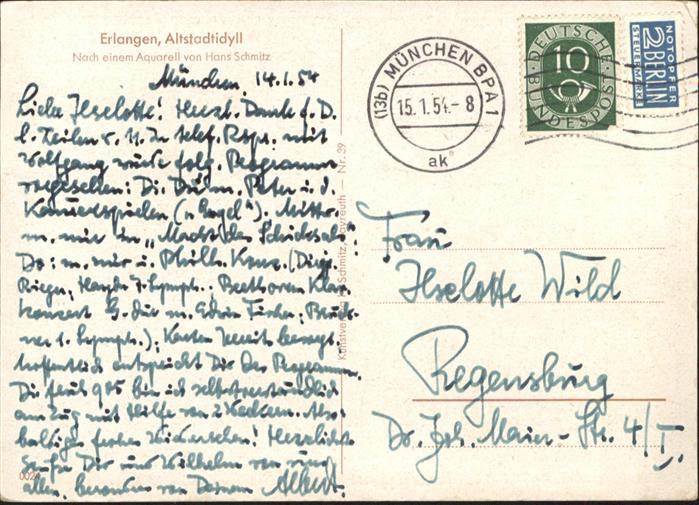 Erlangen, Altstadtidyll
Nach einem Aquarell von Hans Schmitz
München, 14.1.54
Liebe Ilselotte! Herzl. Dank f. D.
l. Zeilen v. 11. In telef. Rspr. mit
Wolfgang wurde folg. Programm
vorgesehen: Di. Peter i. d.
Kammerspielen ("Engel"). Mittw.
m. mir in "Macht des Schicksals"
Do: m. mir i. Philh. Konz. (Dirig.
Rieger, Haydn 7. Symph., Beethoven Klav.
konzert G-dur m. Edwin Fischer, Bruck-
ner 1. Symph.). Karten bereits besorgt.
Hoffentlich entspricht Dir das Programm.
Di früh 9 05 bin ich selbstverständlich
am Zug mit Hilfe von 2 Also
baldiges frohes Wiedersehen! Herzlichste
Grüße Dir und Wilhelm von uns
allen, besonders von Deinem Albert.
0024
Kunstverlag H. Schmitz, Bayreuth — Nr. 39
(13b) MÜNCHEN BPA 1
15.1.54.-8
ak
DEUTSCHE
10
BUNDESPOST
NOTOPFER
2 BERLIN
STEUERMARKE
Frau
Ilselotte Wild
Regensburg
Dr. Joh. Maier-Str. 4/I.